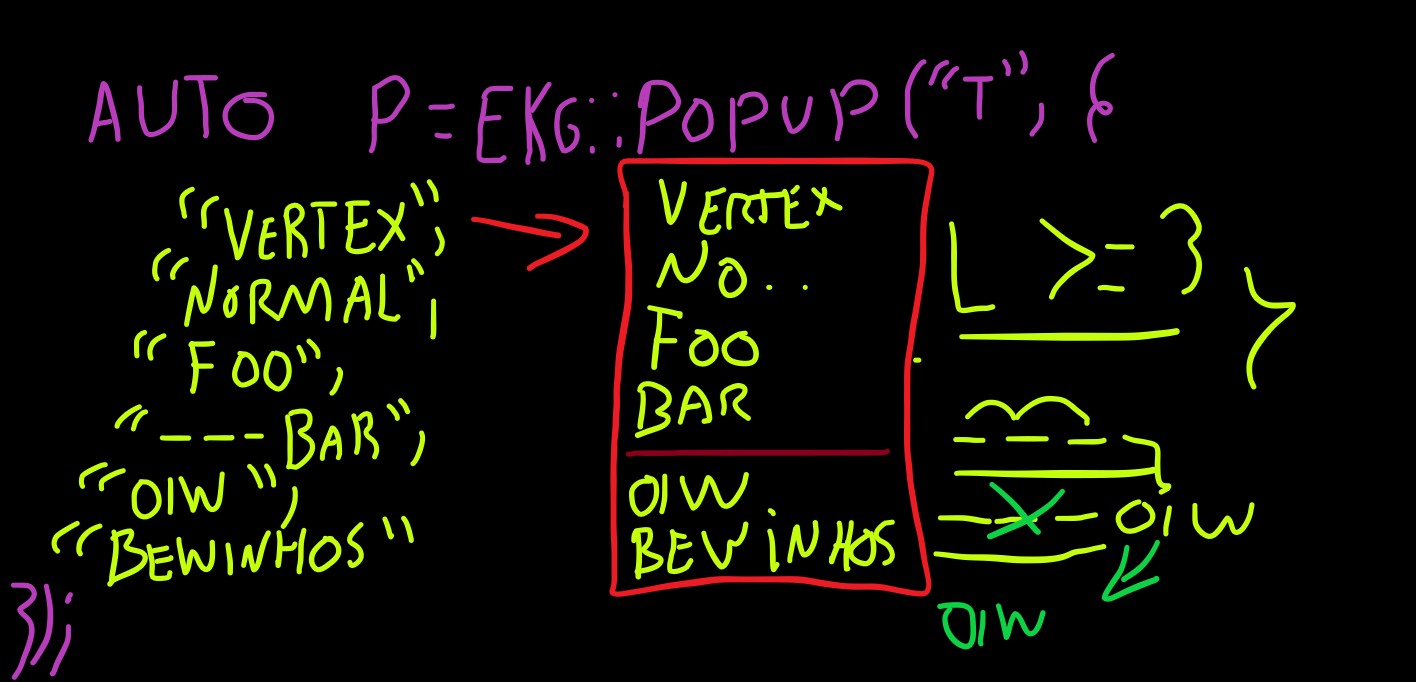 AUTO P=EKG::POPUP("T", {
"VERTEX",
"NORMAL",
"FOO",
"---BAR",
"OIW",
"BEWINHOS"
});
VERTEX
NO..
FOO
BAR
OIW
BEWINHOS
L >= 3
---
--- OIW
OIW